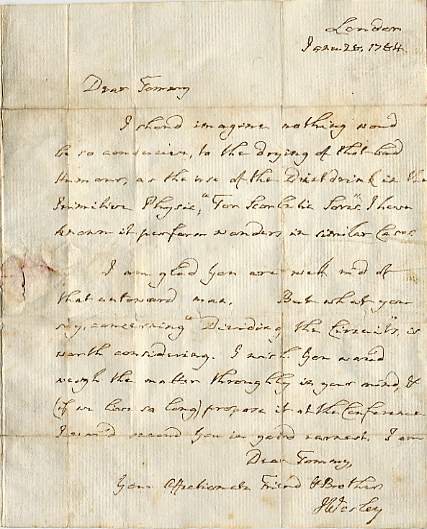 London
Janu 28, 1784
Dear Tommy
I shoud imagine nothing woud
be so conducive, to the drying of that bad
Humour, as the use of the Diet drink in the
Primitive Physic, "For Scorbutic Sores". I have
known it perform wonders in similar Cases.
I am glad you are well rid of
that untoward man. But what you
say, concerning "Dividing the Circuits", is
worth considering. I wish you woud
weigh the matter throughly in your mind, &
(if we live so long) propose it at the Conference
I woud second you in good earnest. I am
Dear Tommy,
Your Affectionate Friend & Brother
JWesley